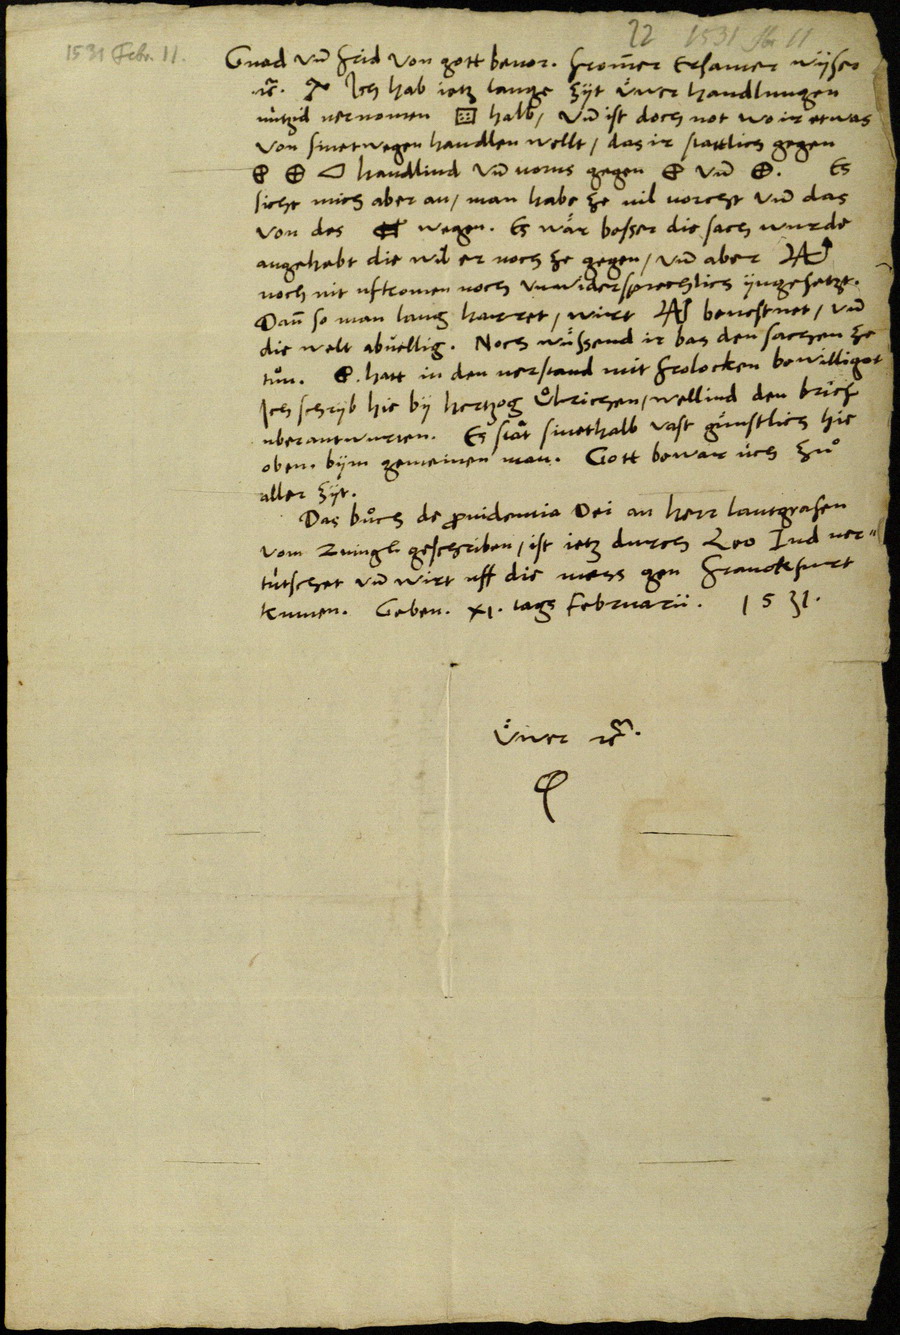 22 1531 Febr 11
1531 Febr. 11.
Gnad vn̄ frid von gott beuor. From̄er Ersamer wyser
ꝛc. Ich hab ietz lange zyt üwer handlungen
nützid vernomen halb / vn̄ ist doch not wo ir etwas
von sinetwegen handlen wellt / das ir stattlich gegen
handlind vn̄ vorus gegen vn̄ . Es
sicht mich aber an / man habe ze vil vorcht vn̄ das
von des wegen. Es wär besser die sach wurde
angehebt die wil er noch ze gegen / vn̄ aber
noch nit ufkomen noch vnwidersprechlich yngesetzt.
Dan̄ so man lang harret / wirt beuestnet / vn̄
die welt abuellig. Noch wüssend ir bas den sachen ze
tůn. . hatt in den verstand mit frolocken bewilligot
Ich schryb hie by hertzog Ůlrichen / wellind den brief
uberantwurten. Es stat sinethalb vast günstlich hie
oben. bym gemeinen man. Gott bewar üch zů
aller zyt.
Das bůch de prouidentia Dei an herr lantgrafen
vom Zuingli geschriben / ist ietz durch Leo Iud ver-
tütschet vn̄ wirt uff die mess gen Franckfurt
kummen. Geben. XI. tags Februarii. 1531.
Üwer ꝛc.